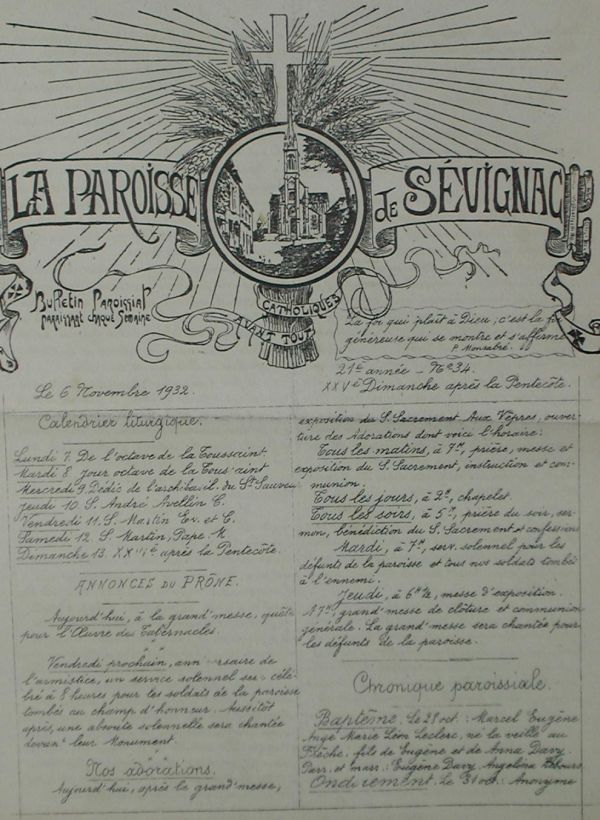 LA PAROISSE DE SÉVIGNAC
Bulletin Paroissial
paraissant chaque Semaine
CATHOLIQUES
AVANT TOUT
La foi qui plaît à Dieu, c'est la foi
généreuse qui se montre et s'affirme
P. Monsabré.
Le 6 Novembre 1932.
21e année - No 34.
XXVe Dimanche après la Pentecôte.
Calendrier liturgique.
Lundi 7. De l'octave de la Toussaint
Mardi 8. Jour octave de la Tous'aint
Mercredi 9. Dédic. de l'archibasil. du St Sauveur
Jeudi 10. S. André Avellin C.
Vendredi 11. S. Martin Ev. et C.
Samedi 12. S. Martin, Pape. M
Dimanche 13. XXVIe après la Pentecôte.
ANNONCES DU PRÔNE.
Aujourd'hui, à la grand'messe, quête
pour l'Œuvre des Tabernacles.
Vendredi prochain, ann rsaire de
l'armistice, un service solennel ser célé-
bré à 8 heures pour les soldats de la paroisse
tombés au champ d'honneur. Aussitôt
après, une aboute solennelle sera chantée
devant leur Monument.
Nos adorations.
Aujourd'hui, après la grand'messe,
exposition du S. Sacrement. Aux Vêpres, ouver-
ture des Adorations dont voici l'horaire:
Tous les matins, à 7h, prière, messe et
exposition du S. Sacrement, instruction et com-
munion.
Tous les jours, à 2h, chapelet.
Tous les soirs, à 5h, prière du soir, ser-
mon, bénédiction du S. Sacrement et confessions
Mardi, à 7h, serv. solennel pour les
défunts de la paroisse et tous nos soldats tombés
à l'ennemi.
Jeudi, à 6h ½, messe d'exposition.
A 7h, grand'messe de clôture et communion
générale. La grand'messe sera chantée pour
les défunts de la paroisse.
Chronique paroissiale.
Baptême. Le 28 oct.: Marcel Eugène
Ange Marie Léon Leclerc, né la veille au
Frêche, fils de Eugène et de Anna Davy.
Parr. et marr.: Eugène Davy, Angelina Rebours
Ondoiement. Le 31 oct.: Anonyme